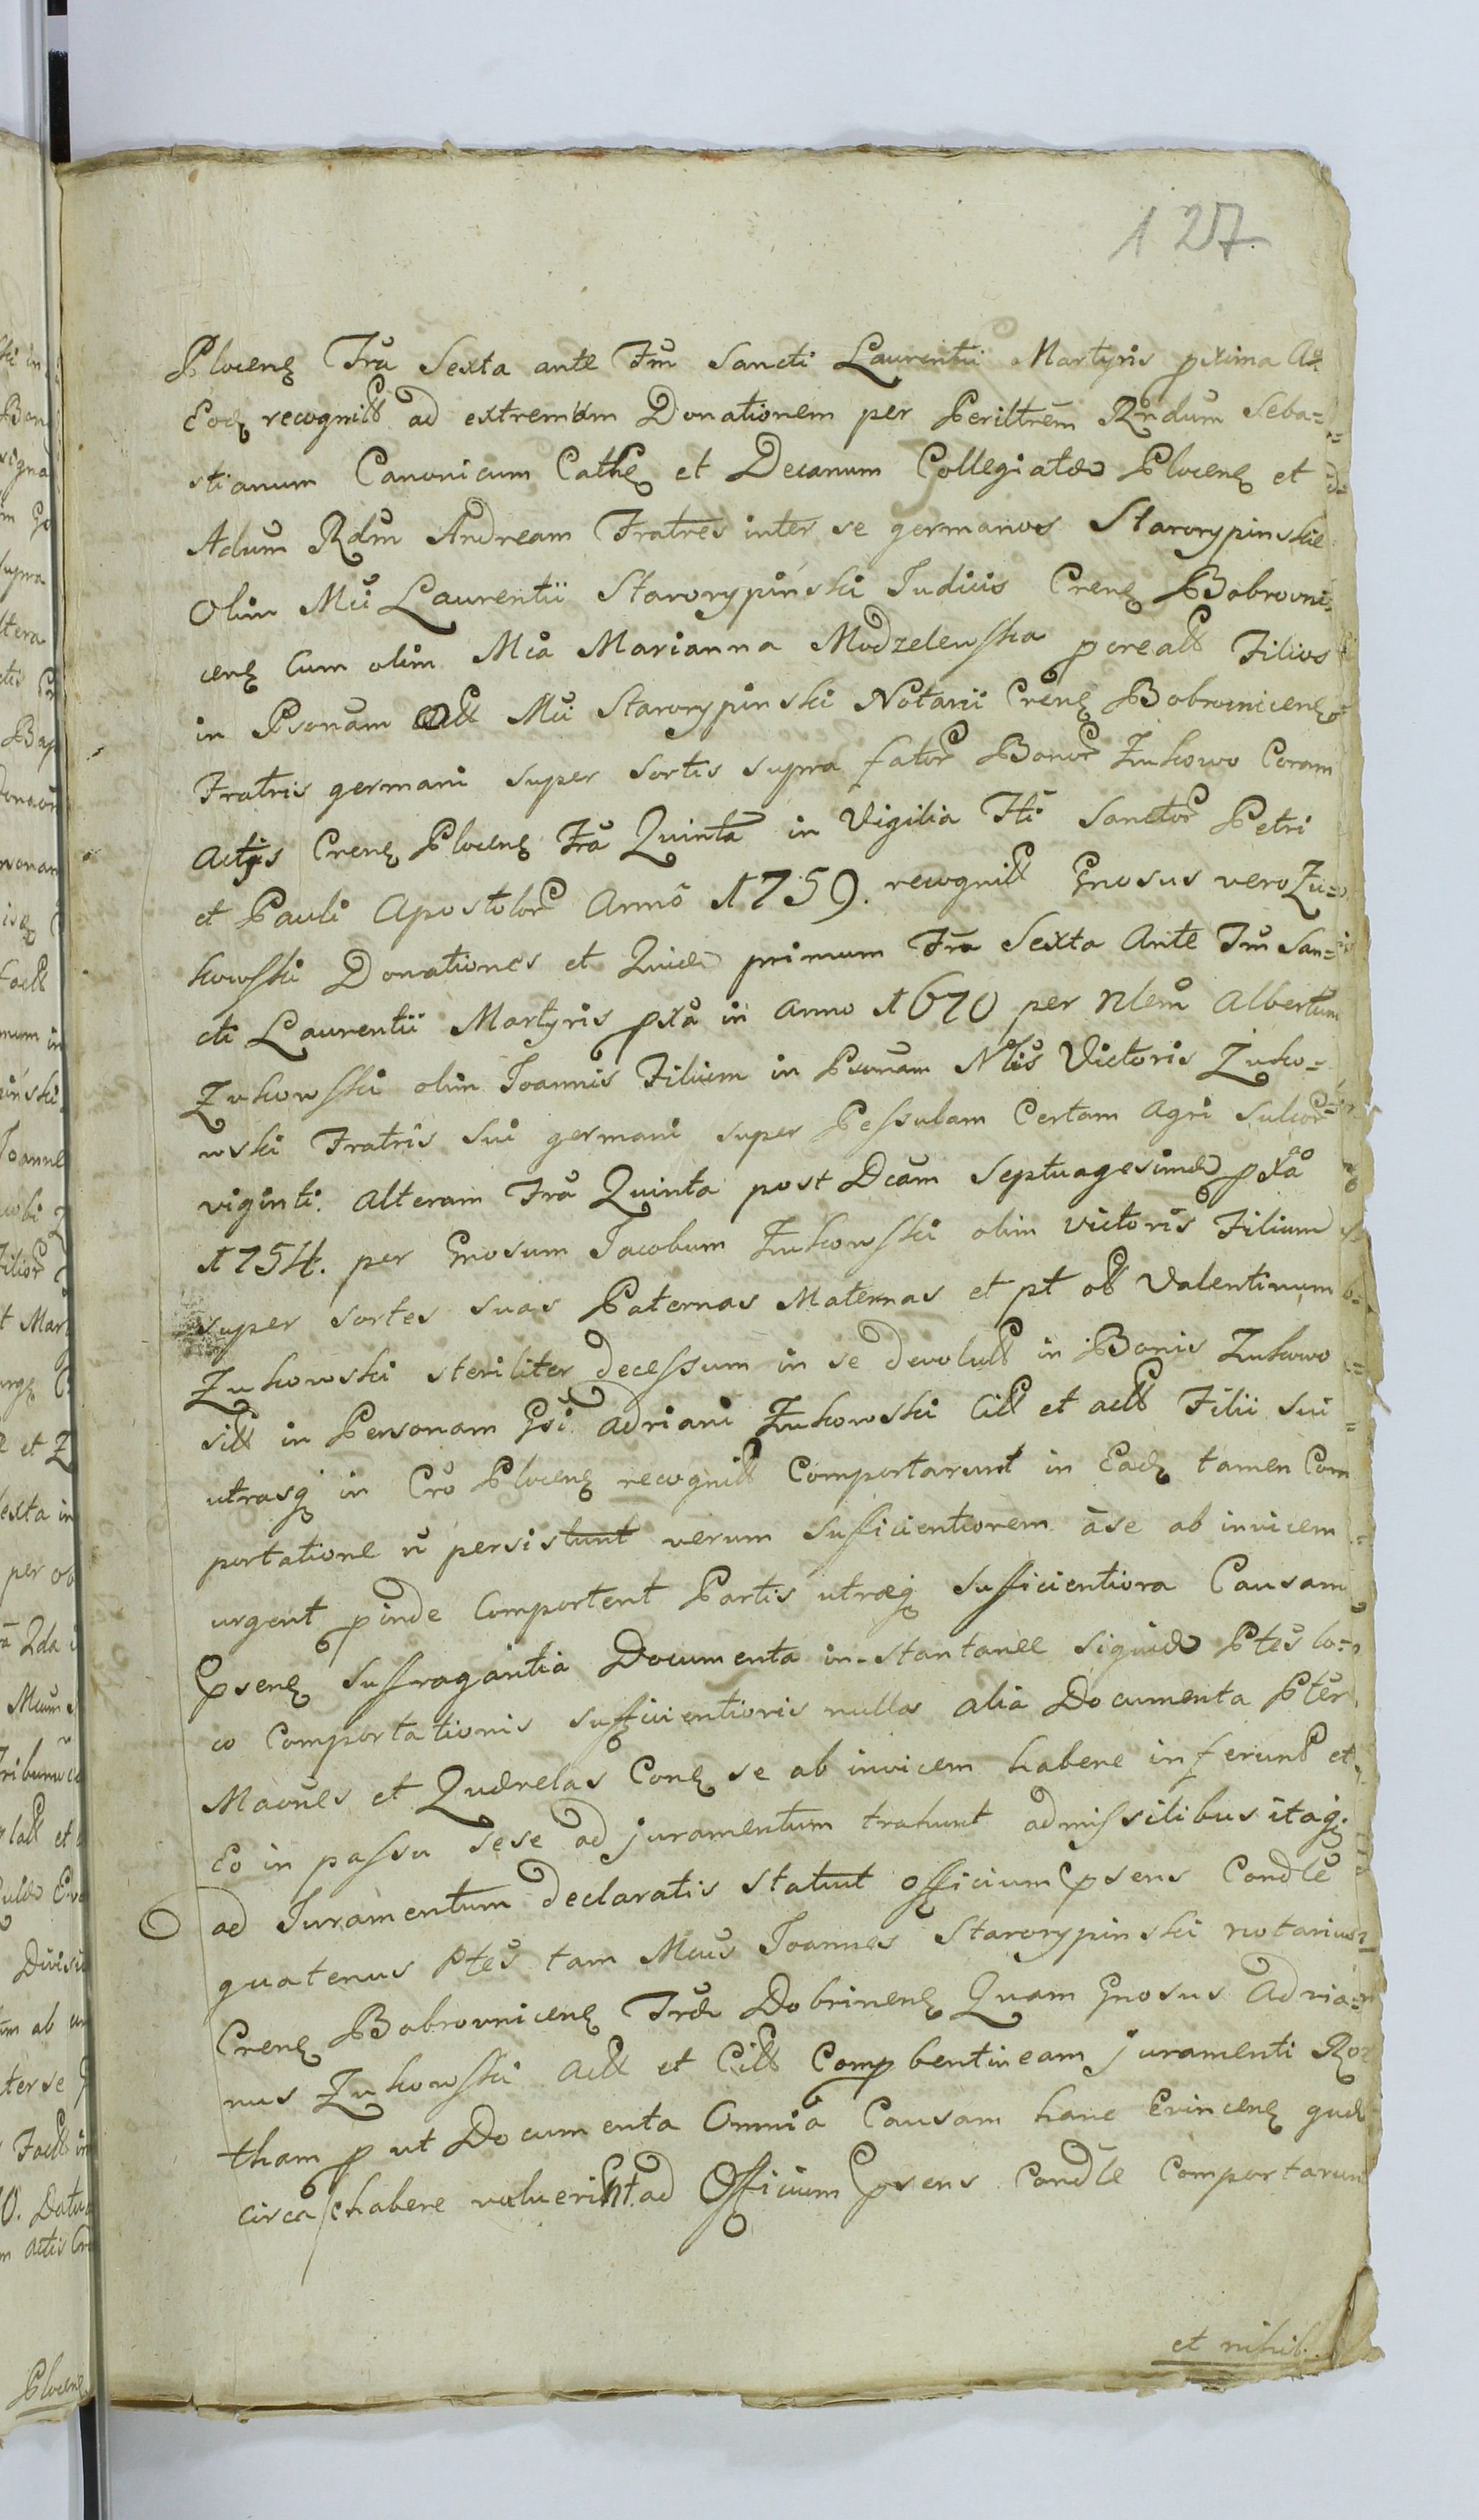 127.
Plocens Fra Sexta ante Fm Sancti Laurentii Martyris pxima Ao
Eod recognitt ad extremam Donationem per Perilltrem Rndum Seba=
stianum Canonicum Cathe et Decanum Collegiatæ Plocens et
Adum Rdm Andream Fratres inter se germanos Starorypinskie
Olim Mci Laurentii Starorypinski Iudicis Crens Bobrovni=
cens Cum olim Mca Marianna Modzelewska pcreatt Filios
in Psonam Att Mci Starorypinski Notarii Crens Bobrovnicens
Fratris germani super Sortis supra fator Bonor Zukowo Coram
Actis Crens Plocens Fra Quinta in Vigilia Fti Sanctor Petri
et Pauli Apostolor Anno 1759. recognitt Gnosus vero Zu=
kowski Donationes et Quidē primum Fra Sexta Ante Fm San=
cti Laurentii Martyris pxa in Anno 1670 per Nlem Albertum
Zukowski olim Joannis Filium in Psonam Nlis Victoris Zuko=
wski Fratris sui germani super Pessulam Certam Agri Sulcor
viginti. Alteram Fra Quinta post Dcam Septuagesimæ pxa ao
1754. per Gnosum Jacobum Zukowski olim Victoris Filium
super sortes suas Paternas Maternas et pt ob Valentinum
Zukowski steriliter decessum in se devolutt in Bonis Zukowo
sitt in Personam Gsi Adriani Zukowski Citt et actt Filii sui
utrasq in Cro Plocens recognitt Comportarunt in Ead tamen Com
portatione n persistunt verum suficientiorem a se ab invicem
urgent pinde Comportent Partis utræq sufficientiora Causam
Psens suffragantia Documenta in-stantanee siquidē Ptes lo=
co Comportationis sufficientioris nulla alia Documenta Pter
Maones et Quærelas Cone se ab invicem habere inferunt et
Eo in passu sese ad juramentum trahunt admissilibus itaq
ad Iuramentum declaratis statuit officium psens Condle
quatenus Ptes tam Mcus Joannes Starorypinski notarius
Crens Bobrovnicens Træ Dobrinens Quam Gnosus Adria=
nus Zukowski Att et Citt Compbent in eam juramenti Ro
tham put Documenta Omnia Causam hanc Evincens quæ
circa habere voluerint ad Officium psens Condle Comportarun
et nihil.